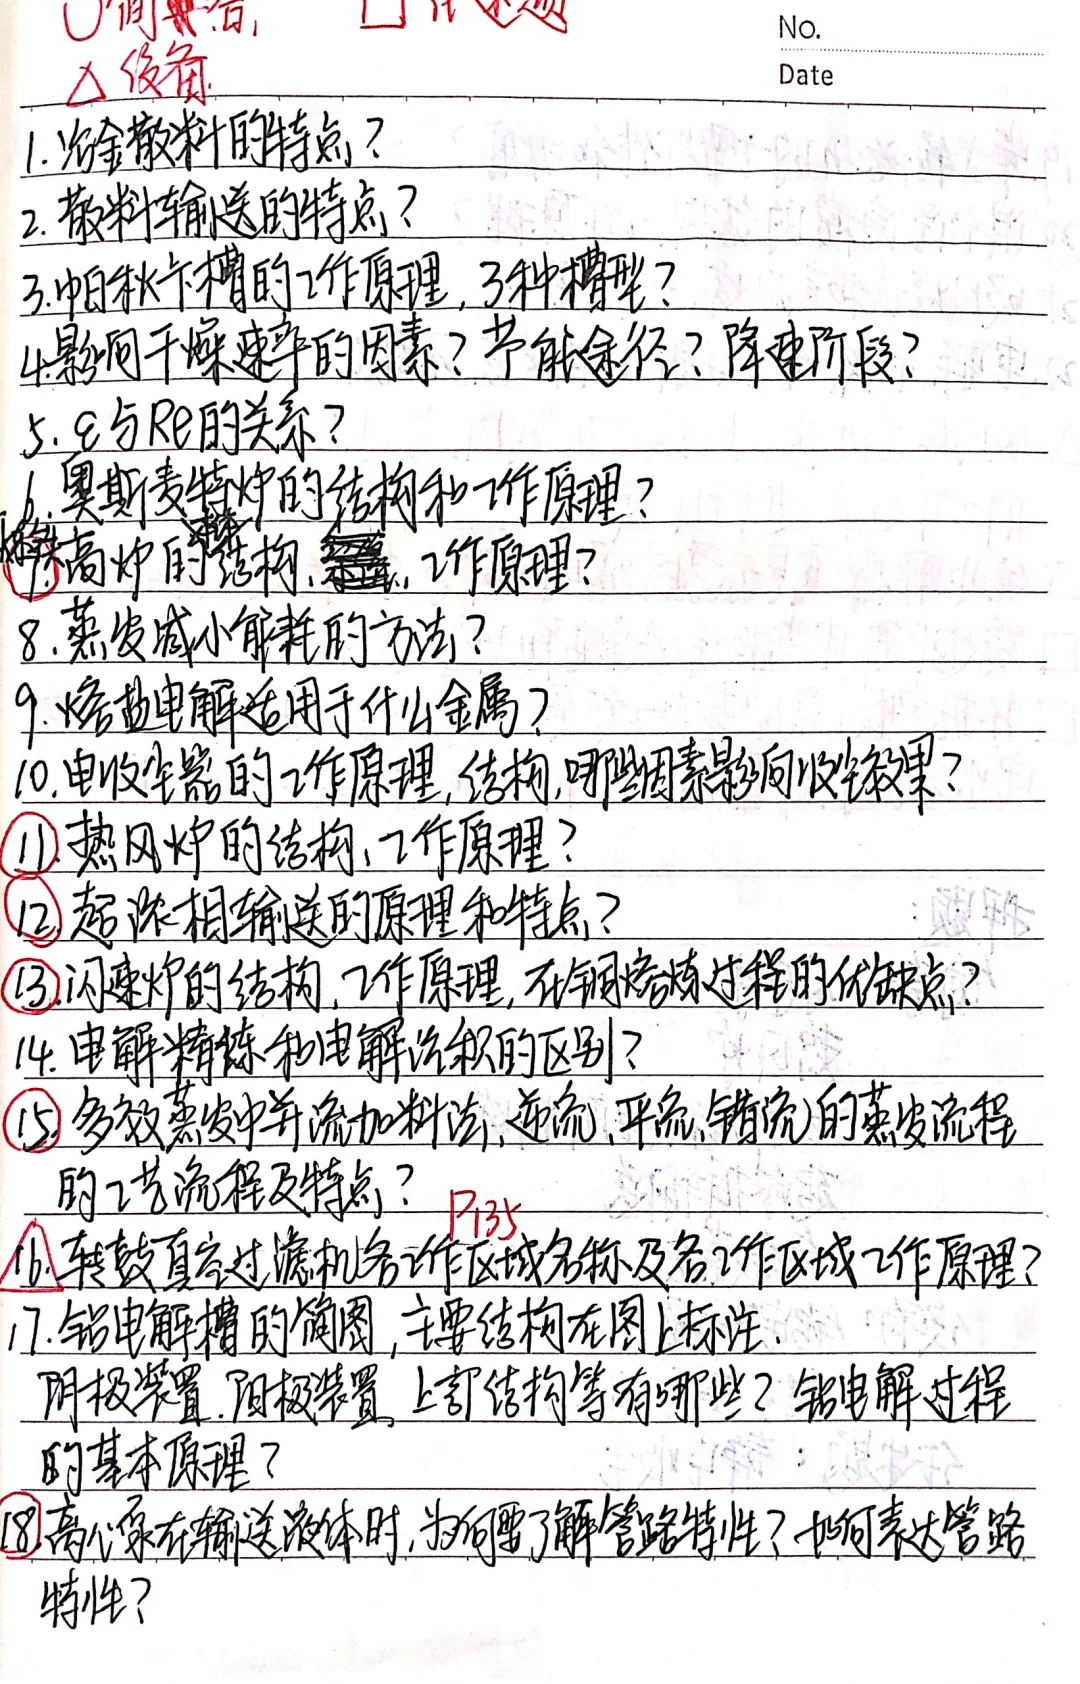 ○简答, □ 论述题
△后备.
No.
Date
1.冶金散料的特点?
2.散料输送的特点?
3.帕秋卡槽的工作原理,3种槽型?
4.影响干燥速率的因素?节能途径?降速阶段?
5.ε与Re的关系?
6.奥斯麦特炉的结构和工作原理?
7.高炉的结构、工作原理?
8.蒸发减小能耗的方法?
9.熔盐电解适用于什么金属?
10.电收尘器的工作原理,结构,哪些因素影响收尘效果?
11.热风炉的结构、工作原理?
12.超浓相输送的原理和特点?
13.闪速炉的结构、工作原理,在铜熔炼过程的优缺点?
14.电解精炼和电解沉积的区别?
15.多效蒸发中并流加料法、逆流、平流、错流)的蒸发流程
的工艺流程及特点?
P135
16.转鼓真空过滤机各工作区域名称及各工作区域工作原理?
17.铝电解槽的简图,主要结构在图上标注.
阴极装置.阳极装置、上部结构等有哪些?铝电解过程
的基本原理?
18.离心泵在输送液体时,为何要了解管路特性?如何表达管路
特性?